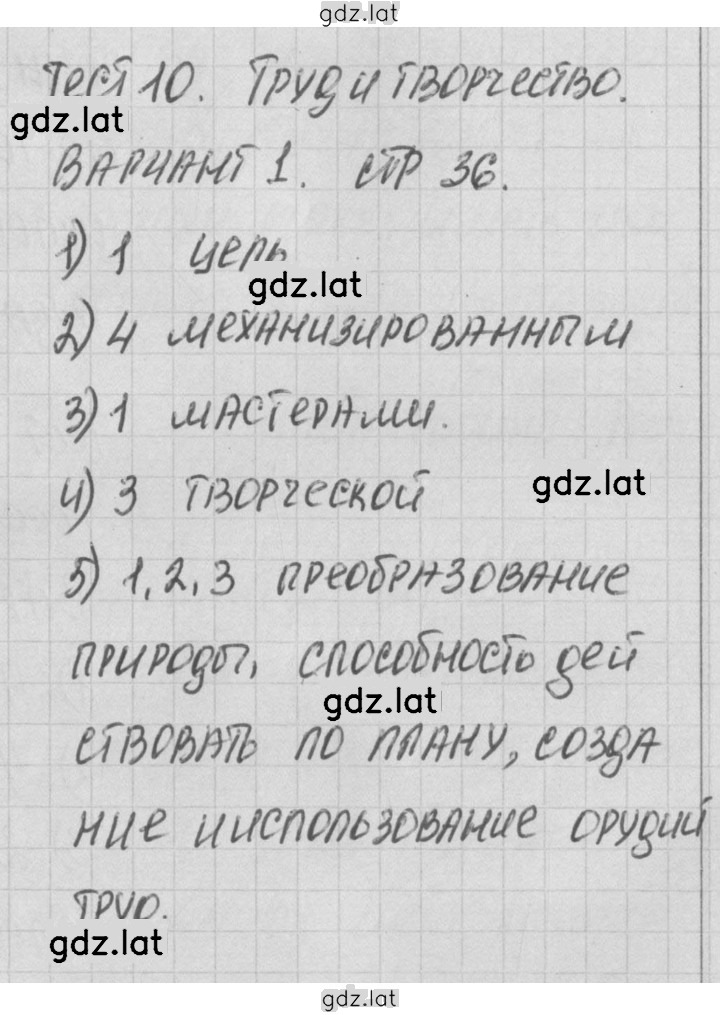 gdz.lat
Тест 10. Труд и творчество.
gdz.lat
Вариант 1. стр 36.
1) 1 цель
gdz.lat
2) 4 механизированным
3) 1 мастерами.
gdz.lat
4) 3 творческой
5) 1, 2, 3 преобразование
природы, способность дей
gdz.lat
ствовать по плану, созда
ние и использование орудий
труд.
gdz.lat
gdz.lat